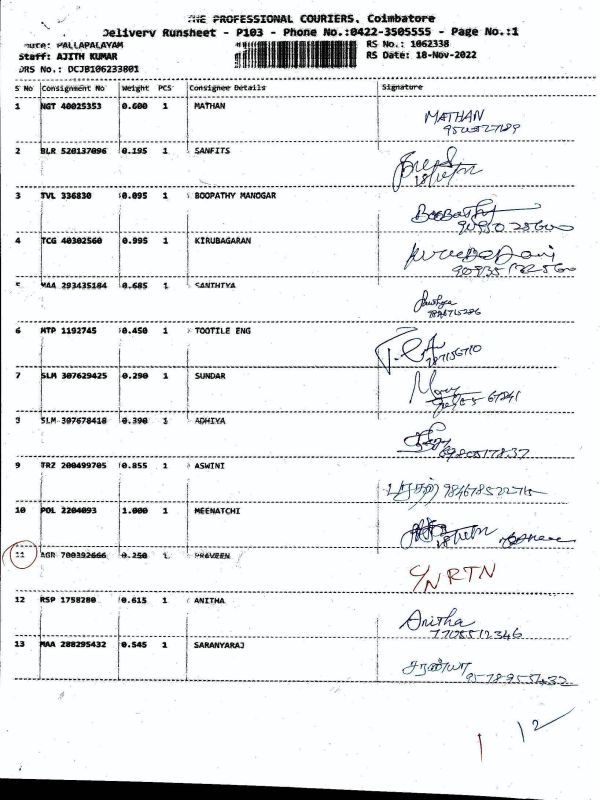 THE PROFESSIONAL COURIERS, Coimbatore
Delivery Runsheet - P103 - Phone No.:0422-3505555 - Page No.:1
Route: PALLAPALAYAM
RS No.: 1062338
Staff: AJITH KUMAR
RS Date: 18-Nov-2022
DRS No.: DCJB106233801
S No Consignment No Weight PCS Consignee Details Signature
1 NGT 40025353 0.600 1 MATHAN
MATHAN
2 BLR 520137096 0.195 1 SANFITS
3 TVL 336830 0.095 1 BOOPATHY MANOGAR
4 TCG 40302560 0.995 1 KIRUBAGARAN
5 MAA 293435184 0.685 1 SANTHIYA
6 MTP 1192745 0.450 1 TOOTILE ENG
7 SLM 307629425 0.290 1 SUNDAR
SLM 307678418 0.390 1 ADHIYA
9 TRZ 200499705 0.855 1 ASWINI
10 POL 2204093 1.000 1 MEENATCHI
11 AGR 700392666 0.250 1 PRAVEEN
RTN
12 RSP 1758280 0.615 1 ANITHA
Anitha
7708512346
13 MAA 288295432 0.545 1 SARANYARAJ
சரண்யா
1 12